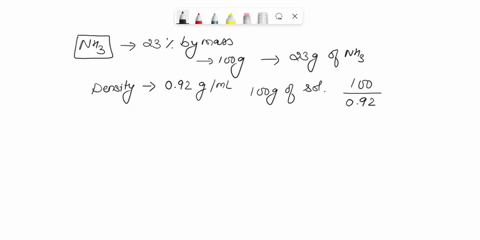 NH3 → 23 % by mass
→ 100g → 23g of NH3
Density → 0.92 g/mL 100g of sol. 100/0.92